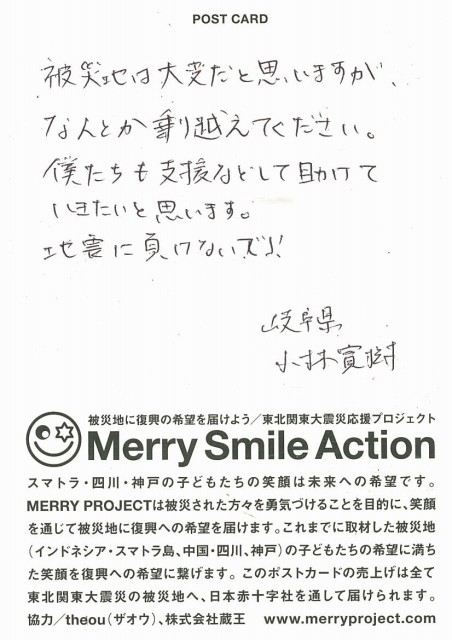 POST CARD
被災地は大変だと思いますが、
なんとか乗り越えてください。
僕たちも支援などして助けて
いきたいと思います。
地害に負けないズリ!
岐阜県
小林寛樹
被災地に復興の希望を届けよう／東北関東大震災応援プロジェクト
Merry Smile Action
スマトラ・四川・神戸の子どもたちの笑顔は未来への希望です。
MERRY PROJECTは被災された方々を勇気づけることを目的に、笑顔
を通じて被災地に復興への希望を届けます。これまでに取材した被災地
（インドネシア・スマトラ島、中国・四川、神戸）の子どもたちの希望に満ち
た笑顔を復興への希望に繋げます。このポストカードの売上げは全て
東北関東大震災の被災地へ、日本赤十字社を通して届けられます。
協力／theou（ザオウ）、株式会社蔵王　www.merryproject.com